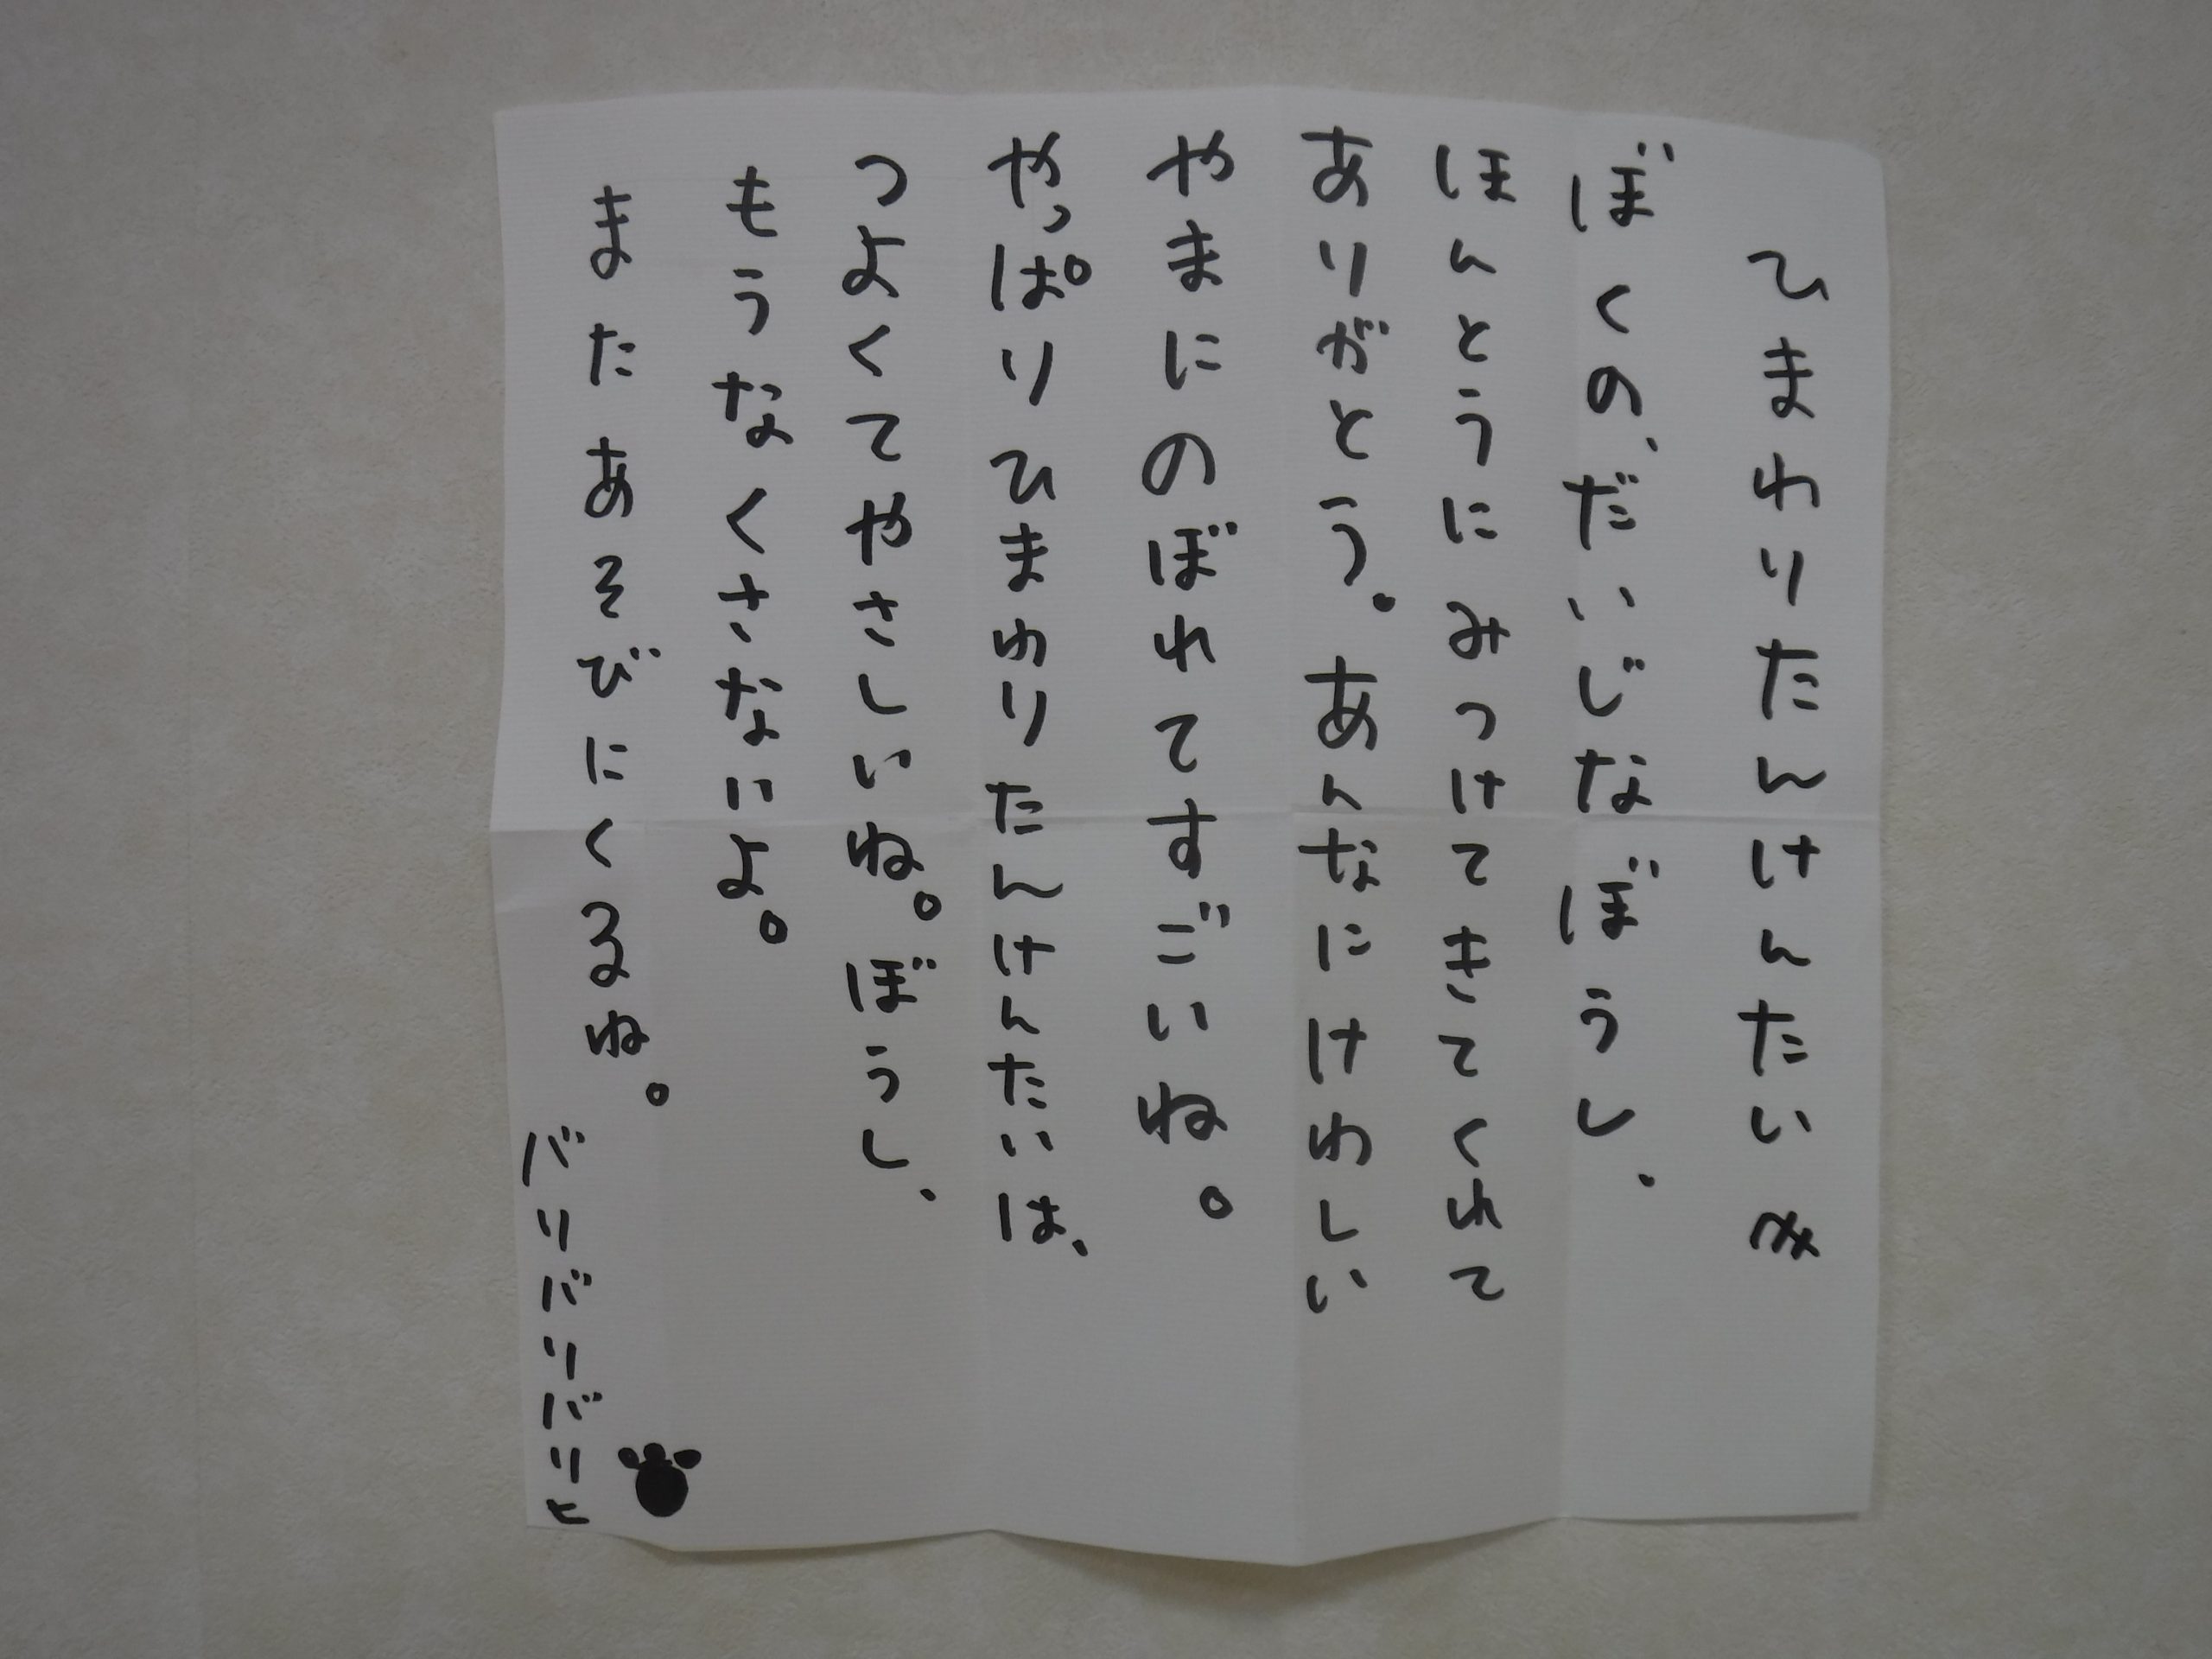 ひまわりたんけんたい
ぼくの、だいじなぼうし、
ほんとうにみつけてきてくれて
ありがとう。あんなにけわしい
やまにのぼれてすごいね。
やっぱりひまわりたんけんたいは、
つよくてやさしいね。ぼうし、
もうなくさないよ。
またあそびにくるね。
バリバリバリヒ